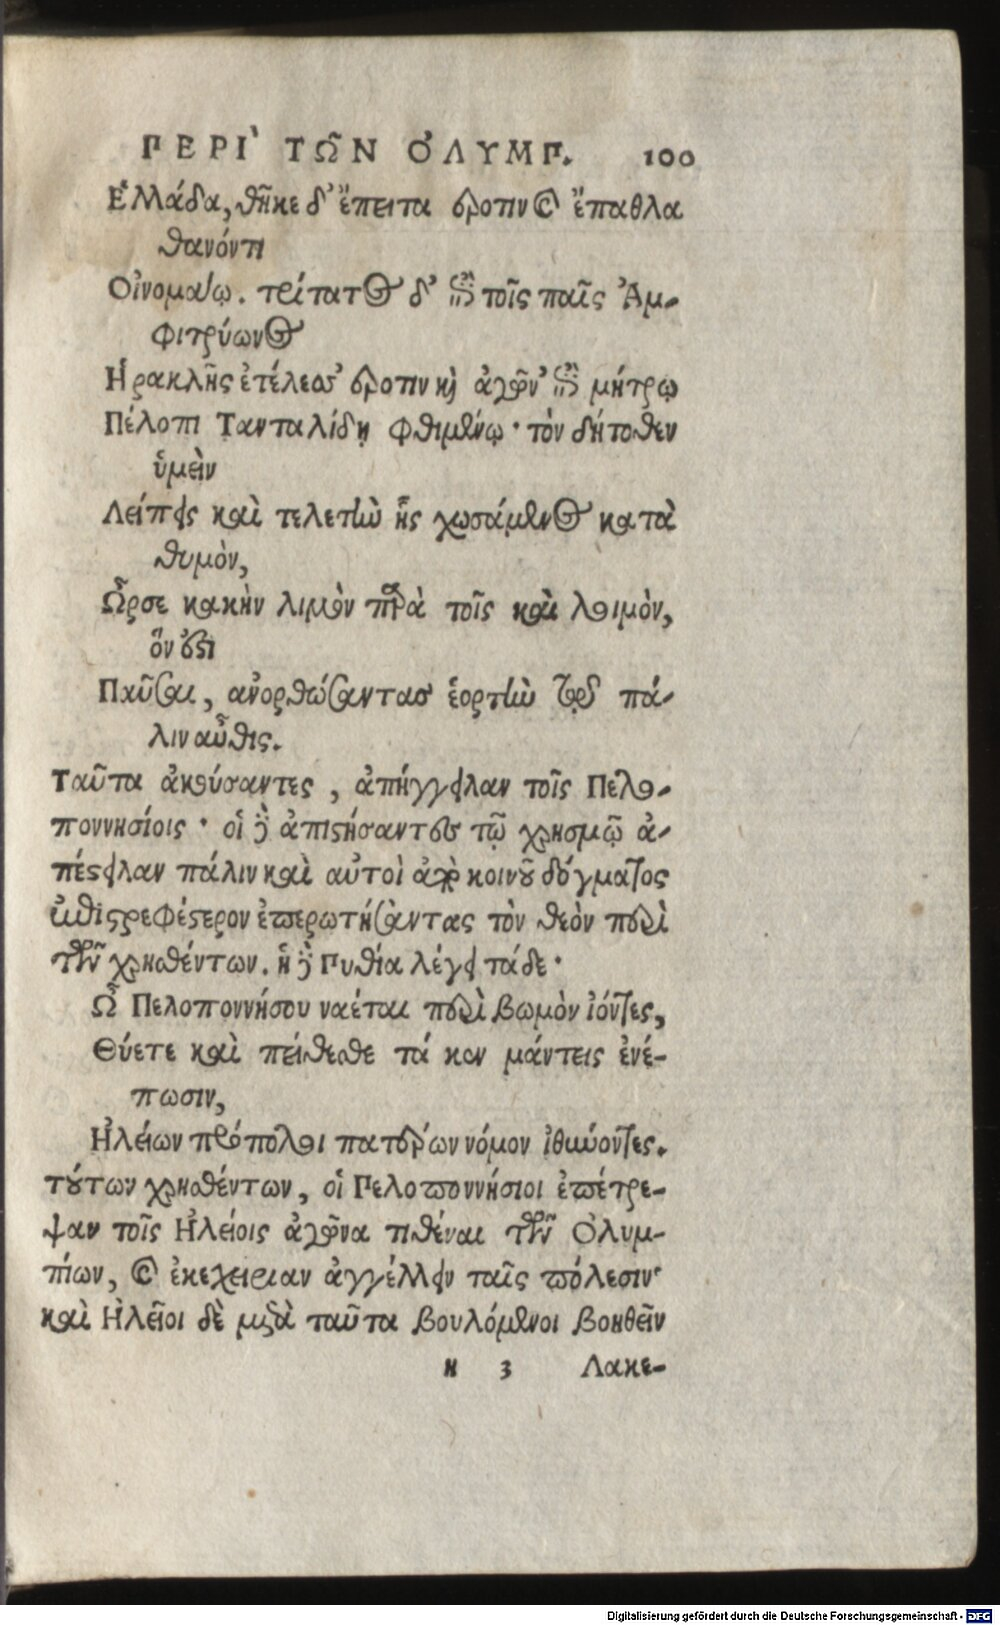 ΠΕΡΙ` ΤΩ͂Ν ὈΛΥΜΠ. 100
Ἑλλάδα, θῆκε δ' ἔπειτα ἑροτὶν καὶ ἔπαθλα
θανόντι
Οἰνομάῳ. τρίτατος δ' ἐπὶ τοῖς παῖς Ἀμ-
φιτρύωνος
Ἡρακλῆς ἐτέλεσσ' ἑροτὶν καὶ ἀγῶν' ἐπὶ μήτρῳ
Πέλοπι Τανταλίδῃ φθιμένῳ· τὸν δήτοθεν
ὑμεὶν
Λείπεις καὶ τελετὴν ἧς χωσάμενος κατὰ
θυμὸν,
Ὦρσε κακὴν λιμὸν παρὰ τοῖς καὶ λοιμὸν,
ὅν ἐστι
Παῦσαι, ἀνορθώσαντας ἑορτὴν πά-
λιν αὖθις.
Ταῦτα ἀκούσαντες, ἀπήγγειλαν τοῖς Πελο-
ποννησίοις· οἱ δὲ ἀπιστήσαντες τῷ χρησμῷ ἀ-
πέστειλαν πάλιν καὶ αὐτοὶ ἀπὸ κοινοῦ δόγματος
ἐπιστρεφέστερον ἐπερωτήσαντας τὸν θεὸν περὶ
τῶν χρηθέντων. ἡ δὲ Πυθία λέγει τάδε·
Ὦ Πελοποννήσου ναέται περὶ βωμὸν ἰόντες,
Θύετε καὶ πείθεσθε τά κεν μάντεις ἐνέ-
πωσιν,
Ἠλείων πρόπολοι πατέρων νόμον ἰθύοντες.
τούτων χρηθέντων, οἱ Πελοποννήσιοι ἐπέτρε-
ψαν τοῖς Ἠλείοις ἀγῶνα τιθέναι τῶν Ὀλυμ-
πίων, καὶ ἐκεχειρίαν ἀγγέλλειν ταῖς πόλεσιν·
καὶ Ἠλεῖοι δὲ μετὰ ταῦτα βουλόμενοι βοηθεῖν
κ 3 Λακε-